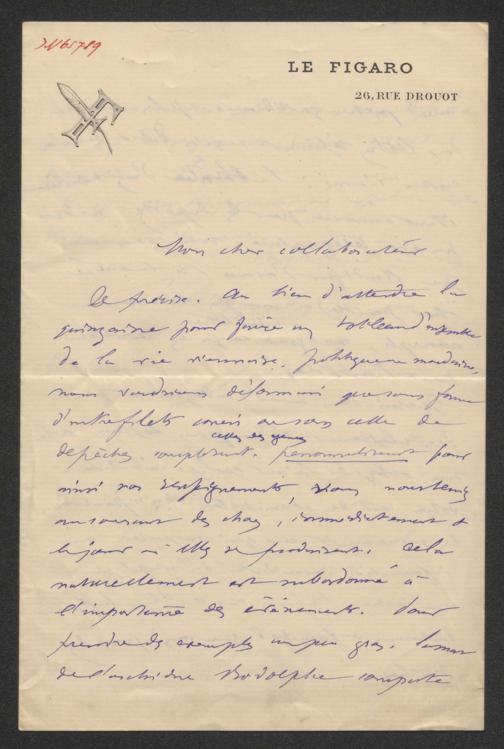 LE FIGARO
26, RUE DROUOT
Mon cher collaborateur
Je précise. Au lieu d'attendre la
quinzaine pour faire un tableau d'ensemble
de la vie viennoise, politique ou mondaine,
nous voudrions désormais que sous forme
d'entrefilets concis ou sous celle de
dépêches complétant celles des agences personnellement pour
ainsi nos renseignements, vous nous teniez
au courant des choses, immédiatement et
le jour où elles se produisent. Cela
naturellement est subordonné à
l'importance des événements. Pour
prendre des exemples un peu gros, la mort
de l'archiduc Rodolphe comporte